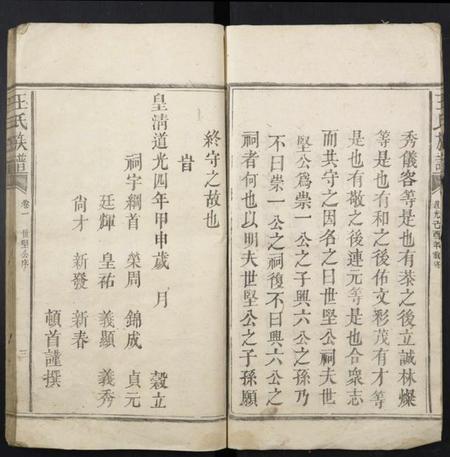 王氏族譜
秀儀客等是也有茶之後立誠林燦
等是也有和之後佑文彩茂有才等
是也有敬之後連元等是也合衆志
而共守之因名之曰世堅公祠夫世
堅公爲崇一公之子興六公之孫乃
不曰崇一公之祠復不曰興六公之
祠者何也以明夫世堅公之子孫願
終守之故也
旹
皇清道光四年甲申歲 月 穀立
祠宇綱首 榮周 錦成 貞元
廷輝 皇祐 義顯 義秀
尙才 新發 新春
頓首謹撰
王氏族譜
卷一 世堅公序
三